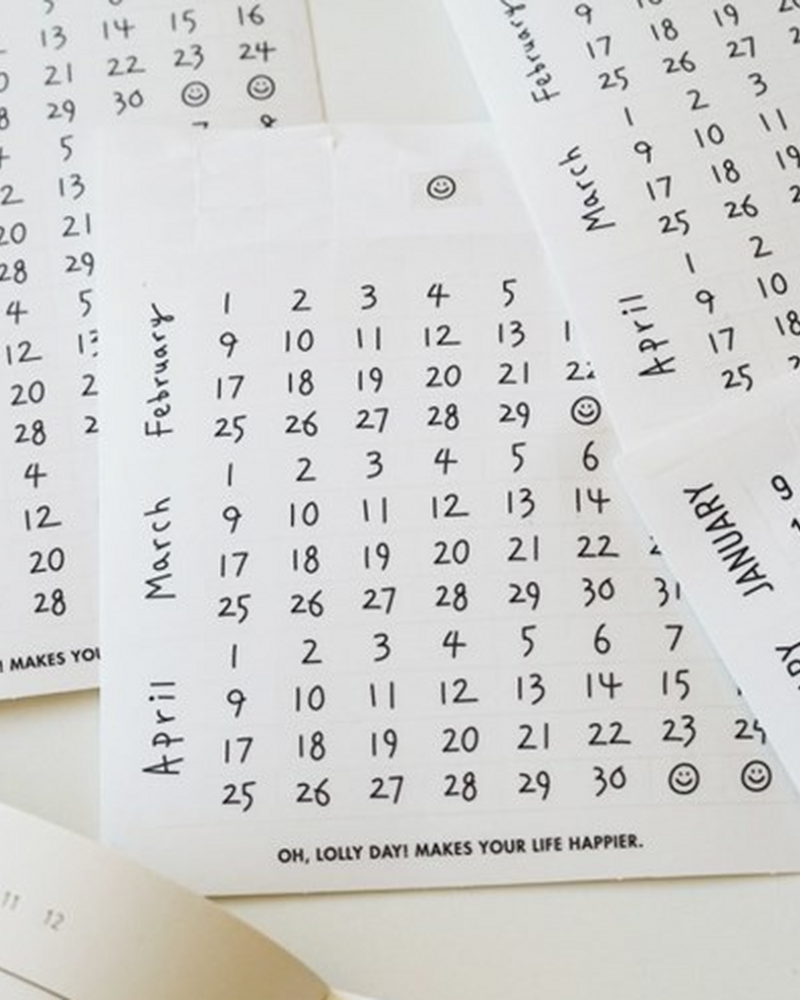 13 14 15 16
21 22 23 24
29 30 ☺ ☺
5
13
20 21
28 29
4 5
12
20
28
4
12
20
28
MAKES
☺
February
1 2 3 4 5
9 10 11 12 13
17 18 19 20 21
25 26 27 28 29 ☺
March
1 2 3 4 5 6
9 10 11 12 13 14
17 18 19 20 21 22
25 26 27 28 29 30 31
April
1 2 3 4 5 6 7
9 10 11 12 13 14 15
17 18 19 20 21 22 23 24
25 26 27 28 29 30 ☺ ☺
OH, LOLLY DAY! MAKES YOUR LIFE HAPPIER.
February
9
17 18 19
25 26 27
March
1 2 3
9 10 11
17 18 19
25 26
April
1 2
9 10
17 18
25
JANUARY
9
11 12